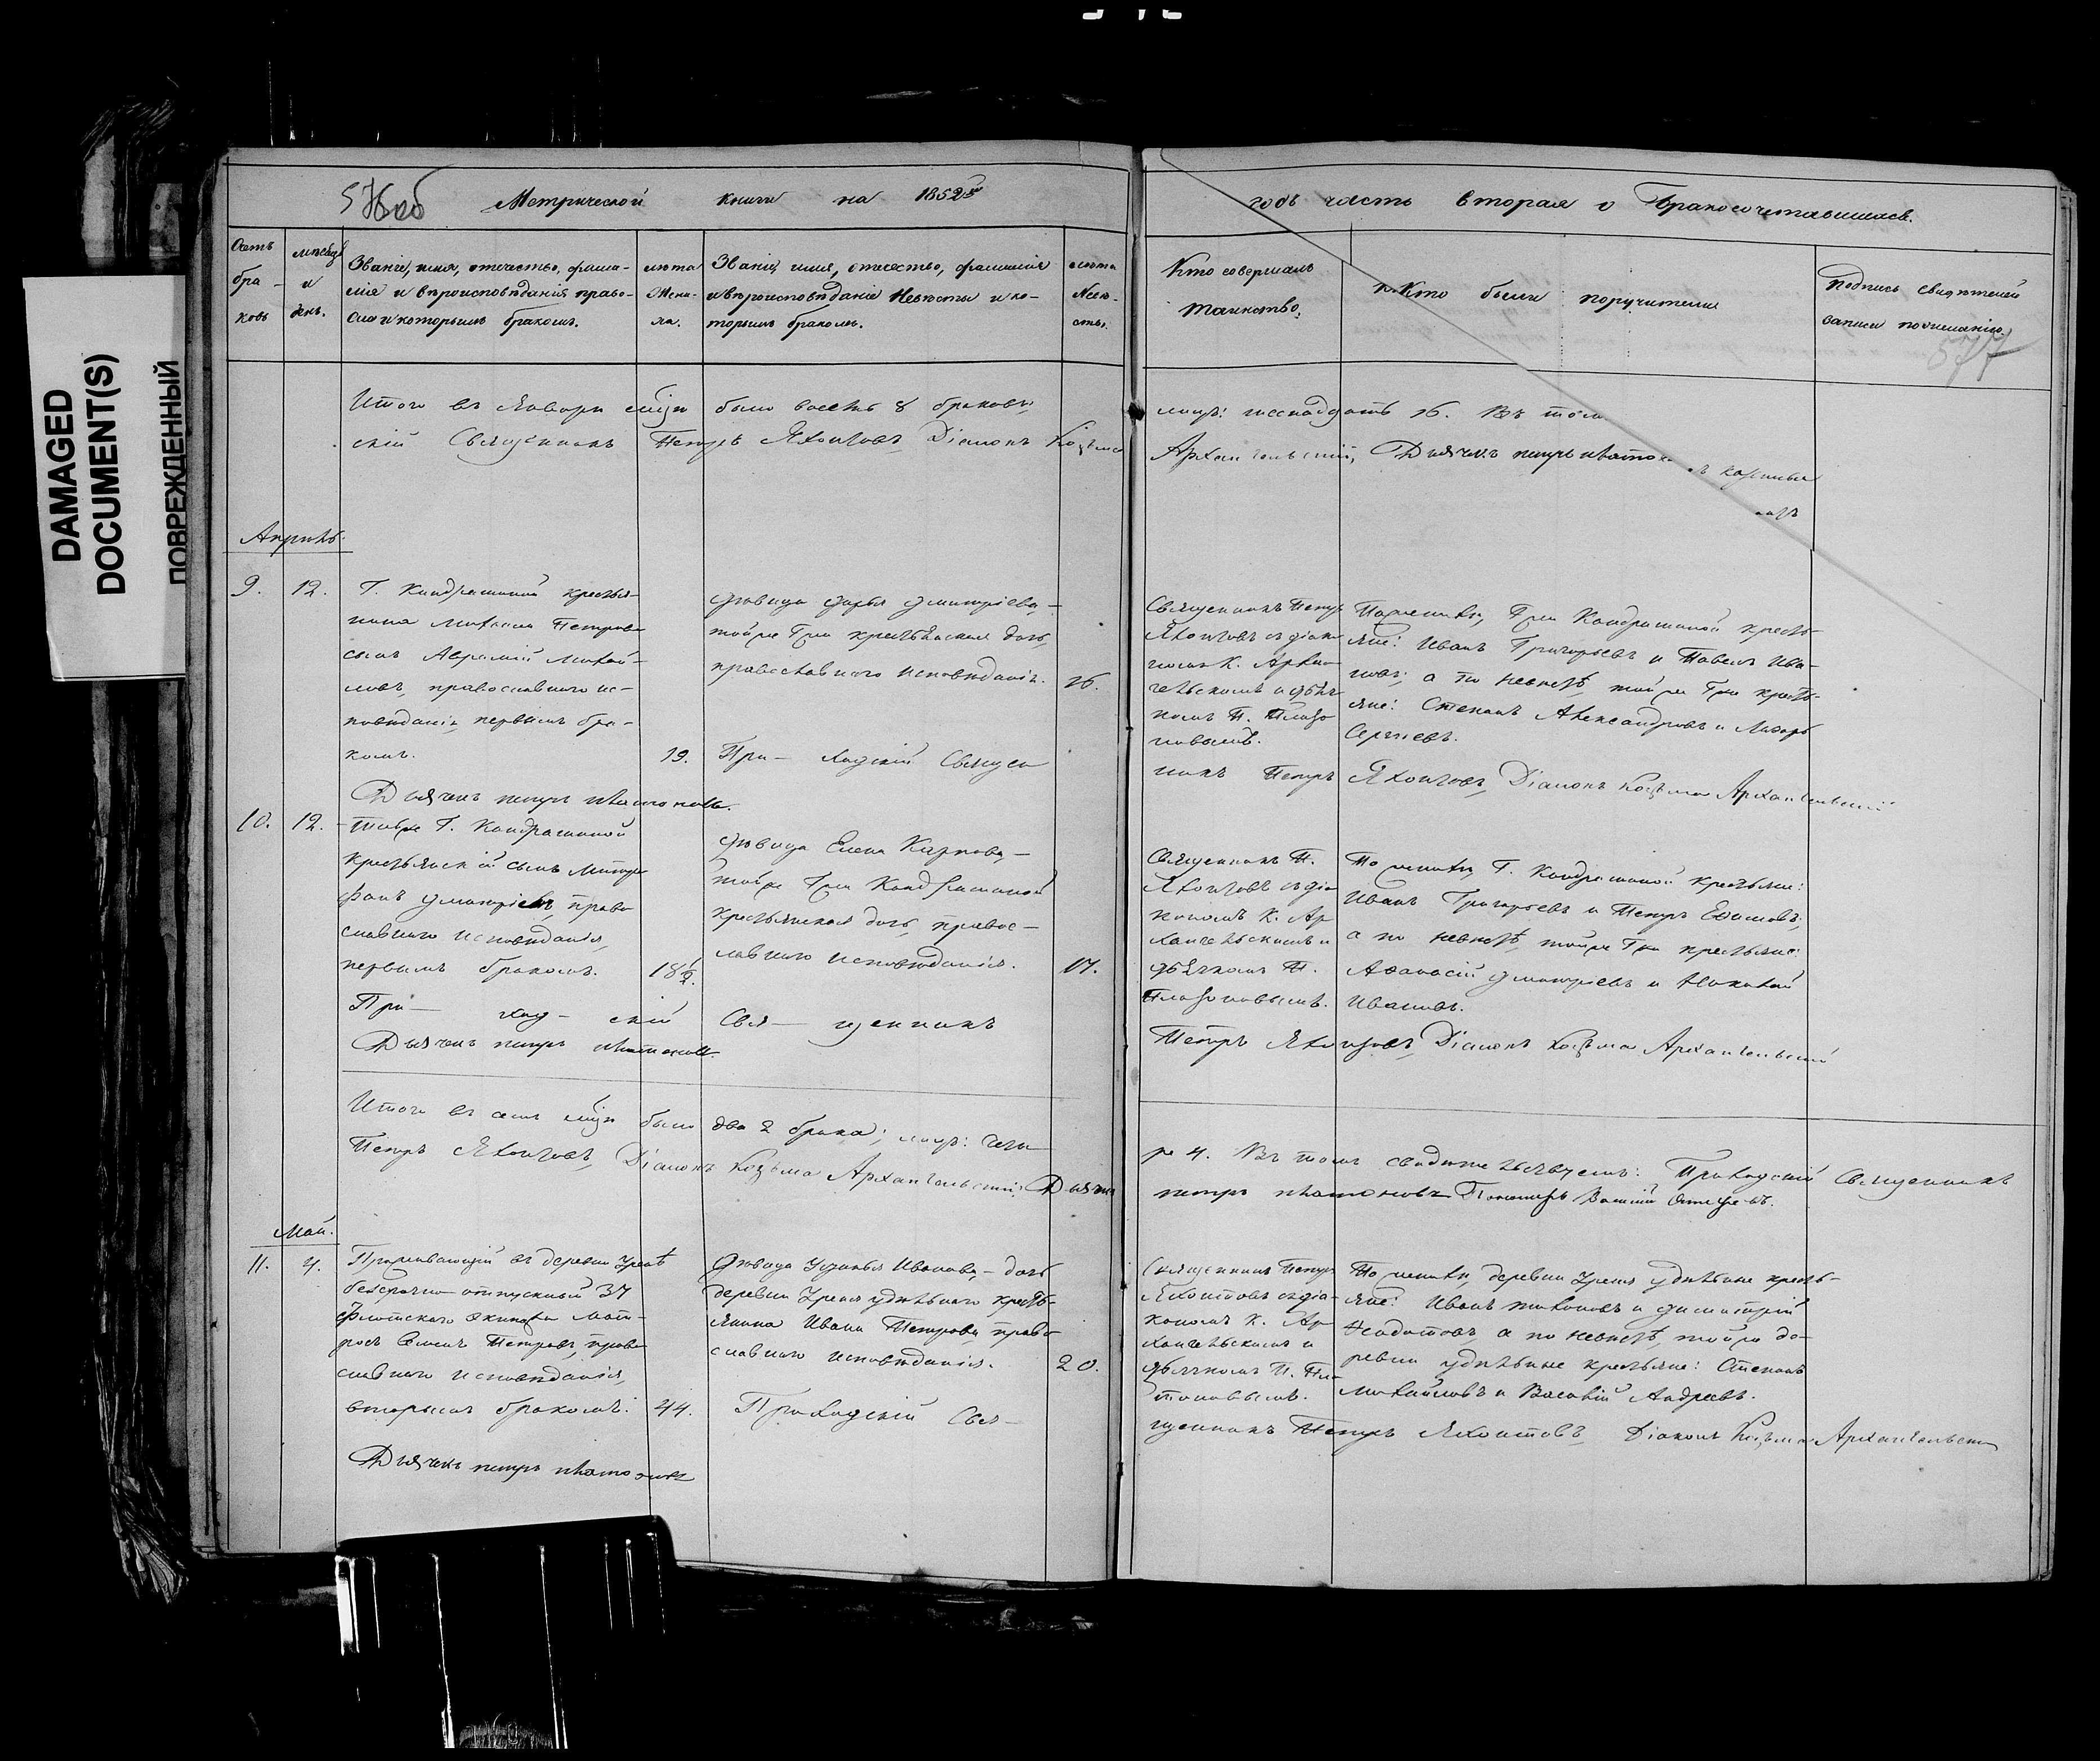 DAMAGED
DOCUMENT(S)
ПОВРЕЖДЕННЫЙ
576об Метрической книги на 1852й
годъ часть вторая о бракосочетавшихся.
577
Счетъ браковъ
мѣсяцъ и день.
Званіе, имя, отечество, фами-
лія и вѣроисповѣданія
и которымъ бракомъ.
лѣта
Жени-
ха.
Званіе, имя, отечество, фамилія
и вѣроисповѣданіе Невѣсты и ко-
торымъ бракомъ.
лѣта
Невѣ-
сты.
Кто совершалъ
таинство.
Кто были поручители
Подпись свидѣтелей
записи по желанію.
Итого въ Январѣ мцѣ было восемь 8 браковъ,
скій Священникъ Петръ Яхонтовъ, Діаконъ Козьма
лицъ: шеснадцать 16. Въ томъ
Архангельскій, Дьячекъ петръ платоно
Апрѣль.
9. 12.
Г. Кандрашиной кресть-
янина Михаила Петрова
сынъ Михай-
ловъ, православнаго ис-
повѣданія, первымъ бра-
комъ. 19.
дѣвица Дарья Дмитріева,
тойже Гжи крестьянская дочь,
православнаго исповѣданія. 16.
Священникъ Петръ
Яхонтовъ съ діако
номъ К. Архан
гельскимъ и дьяч
комъ П. Плато
новымъ.
По женихѣ, Гжи Кандрашиной кресть-
яне: Иванъ Григорьевъ и Павелъ Ива-
новъ; а по невѣстѣ, тойже Гжи кресть-
яне: Степанъ Александровъ и
Сергѣевъ.
При- ходскій Священ
никъ Петръ Яхонтовъ, Діаконъ Козьма Архангельскій
Дьячекъ петръ платоновъ.
10. 12.
тойже Г. Кандрашиной
крестьянскій сынъ Митро
фанъ Дмитріевъ, право
славнаго исповѣданія,
первымъ бракомъ. 18½.
дѣвица Елена Карпова,
тойже Гжи Кандрашиной
крестьянская дочь, правос-
лавнаго исповѣданія. 17.
Священникъ П.
Яхонтовъ съ діа
кономъ К. Ар
хангельскимъ и
дьячкомъ П.
Платоновымъ.
По женихѣ, Г. Кандрашиной крестьяне:
Иванъ Григорьевъ и Петръ Ефимовъ;
а по невѣстѣ, тойже Гжи крестьяне:
Афанасій Дмитріевъ и Николай
Ивановъ.
При- ход- скій Свя- щенникъ
Петръ Яхонтовъ, Діаконъ Козьма Архангельскій
Дьячекъ петръ платоновъ.
Итого въ семъ мцѣ было два 2 брака; лицъ: четы
ре 4. Въ томъ свидѣтельствуемъ: Приходскій Священникъ
Петръ Яхонтовъ, Діаконъ Козьма Архангельскій, Дьячекъ
петръ платоновъ Пономарь Василій
Май.
11. 4.
Проживающій въ деревнѣ
безсрочно отпускный 37
флотскаго экипажа мат-
росъ Петровъ, право
славнаго исповѣданія,
вторымъ бракомъ. 44.
Дѣвица Устинья Иванова, дочь
деревни удѣльнаго кресть-
янина Ивана Петрова, право
славнаго исповѣданія. 20.
Священникъ Петръ
Яхонтовъ съ діа-
кономъ К. Ар
хангельскимъ и
дьячкомъ П. Пла
тоновымъ.
По женихѣ, деревни удѣльные кресть-
яне: Иванъ и Димитрій
Ѳедотовъ, а по невѣстѣ, тойже де-
ревни удѣльные крестьяне: Степанъ
Михайловъ и Василій Андреевъ.
Приходскій Свя-
щенникъ Петръ Яхонтовъ, Діаконъ Козьма Архангельскій
Дьячекъ петръ платоновъ